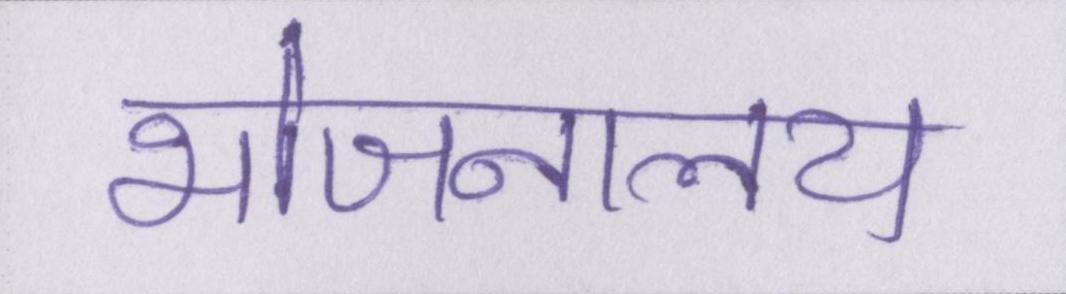 भोजनालय